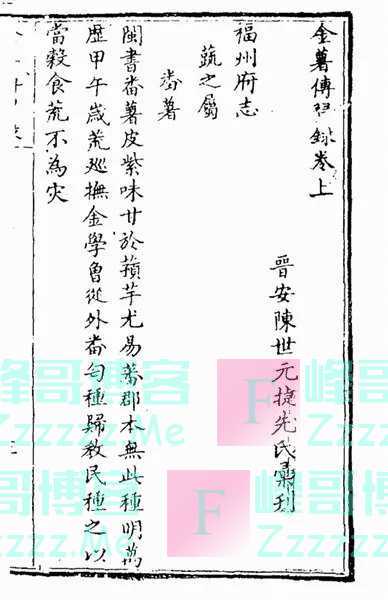 金薯傳習錄卷上
晉安陳世元捷先氏彙刋
福州府志
蔬之屬
畨薯
閩書畨薯皮紫味甘於蘋芋尤易蕃郡本無此種明萬
歴甲午歲荒廵撫金學魯從外畨匄種歸教民種之以
當穀食荒不為灾
F
峰哥博客
Zzzzz.Me
F
峰哥博客
Zzzzz.Me